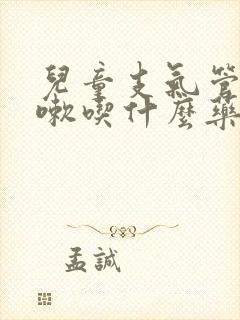 兒童支氣管
嗽喫什麼藥
孟誠